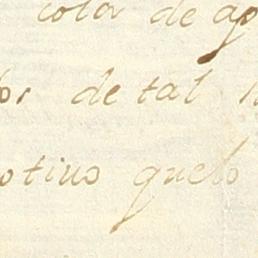 color de ag
or de tal
otivo quelo